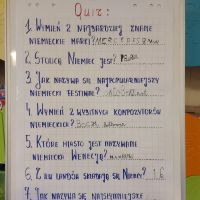 Quiz:
1. Wymień 2 najbardziej znane
niemieckie marki
2. Stolicą Niemiec jest?
3. Jak nazywa się najpopularniejszy
niemiecki festiwal?
4. Wymień 2 wybitnych kompozytorów
niemieckich? Bach
5. Które miasto jest nazywane
niemiecką Wenecją?
6. Z ilu landów składają się Niemcy? 16
7. Jak nazywa się najsłynniejsze